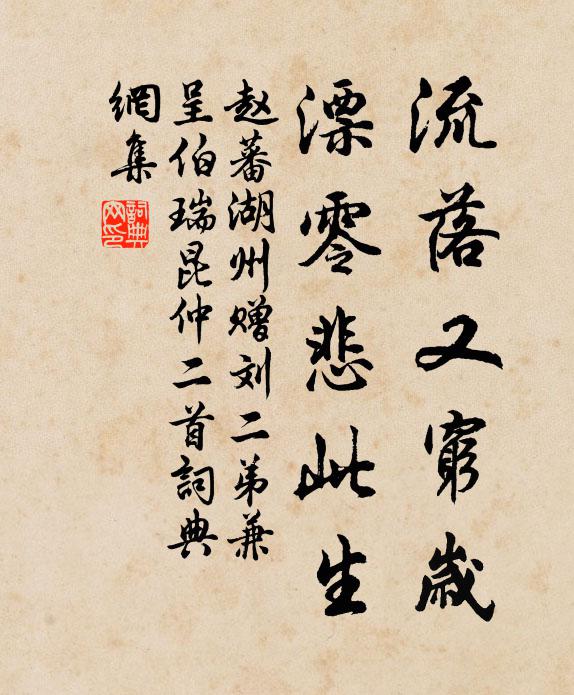 流落又窮歲
漂零悲此生
赵蕃湖州赠刘二弟兼
呈伯瑞昆仲二首詞典
網集
詞典
网印